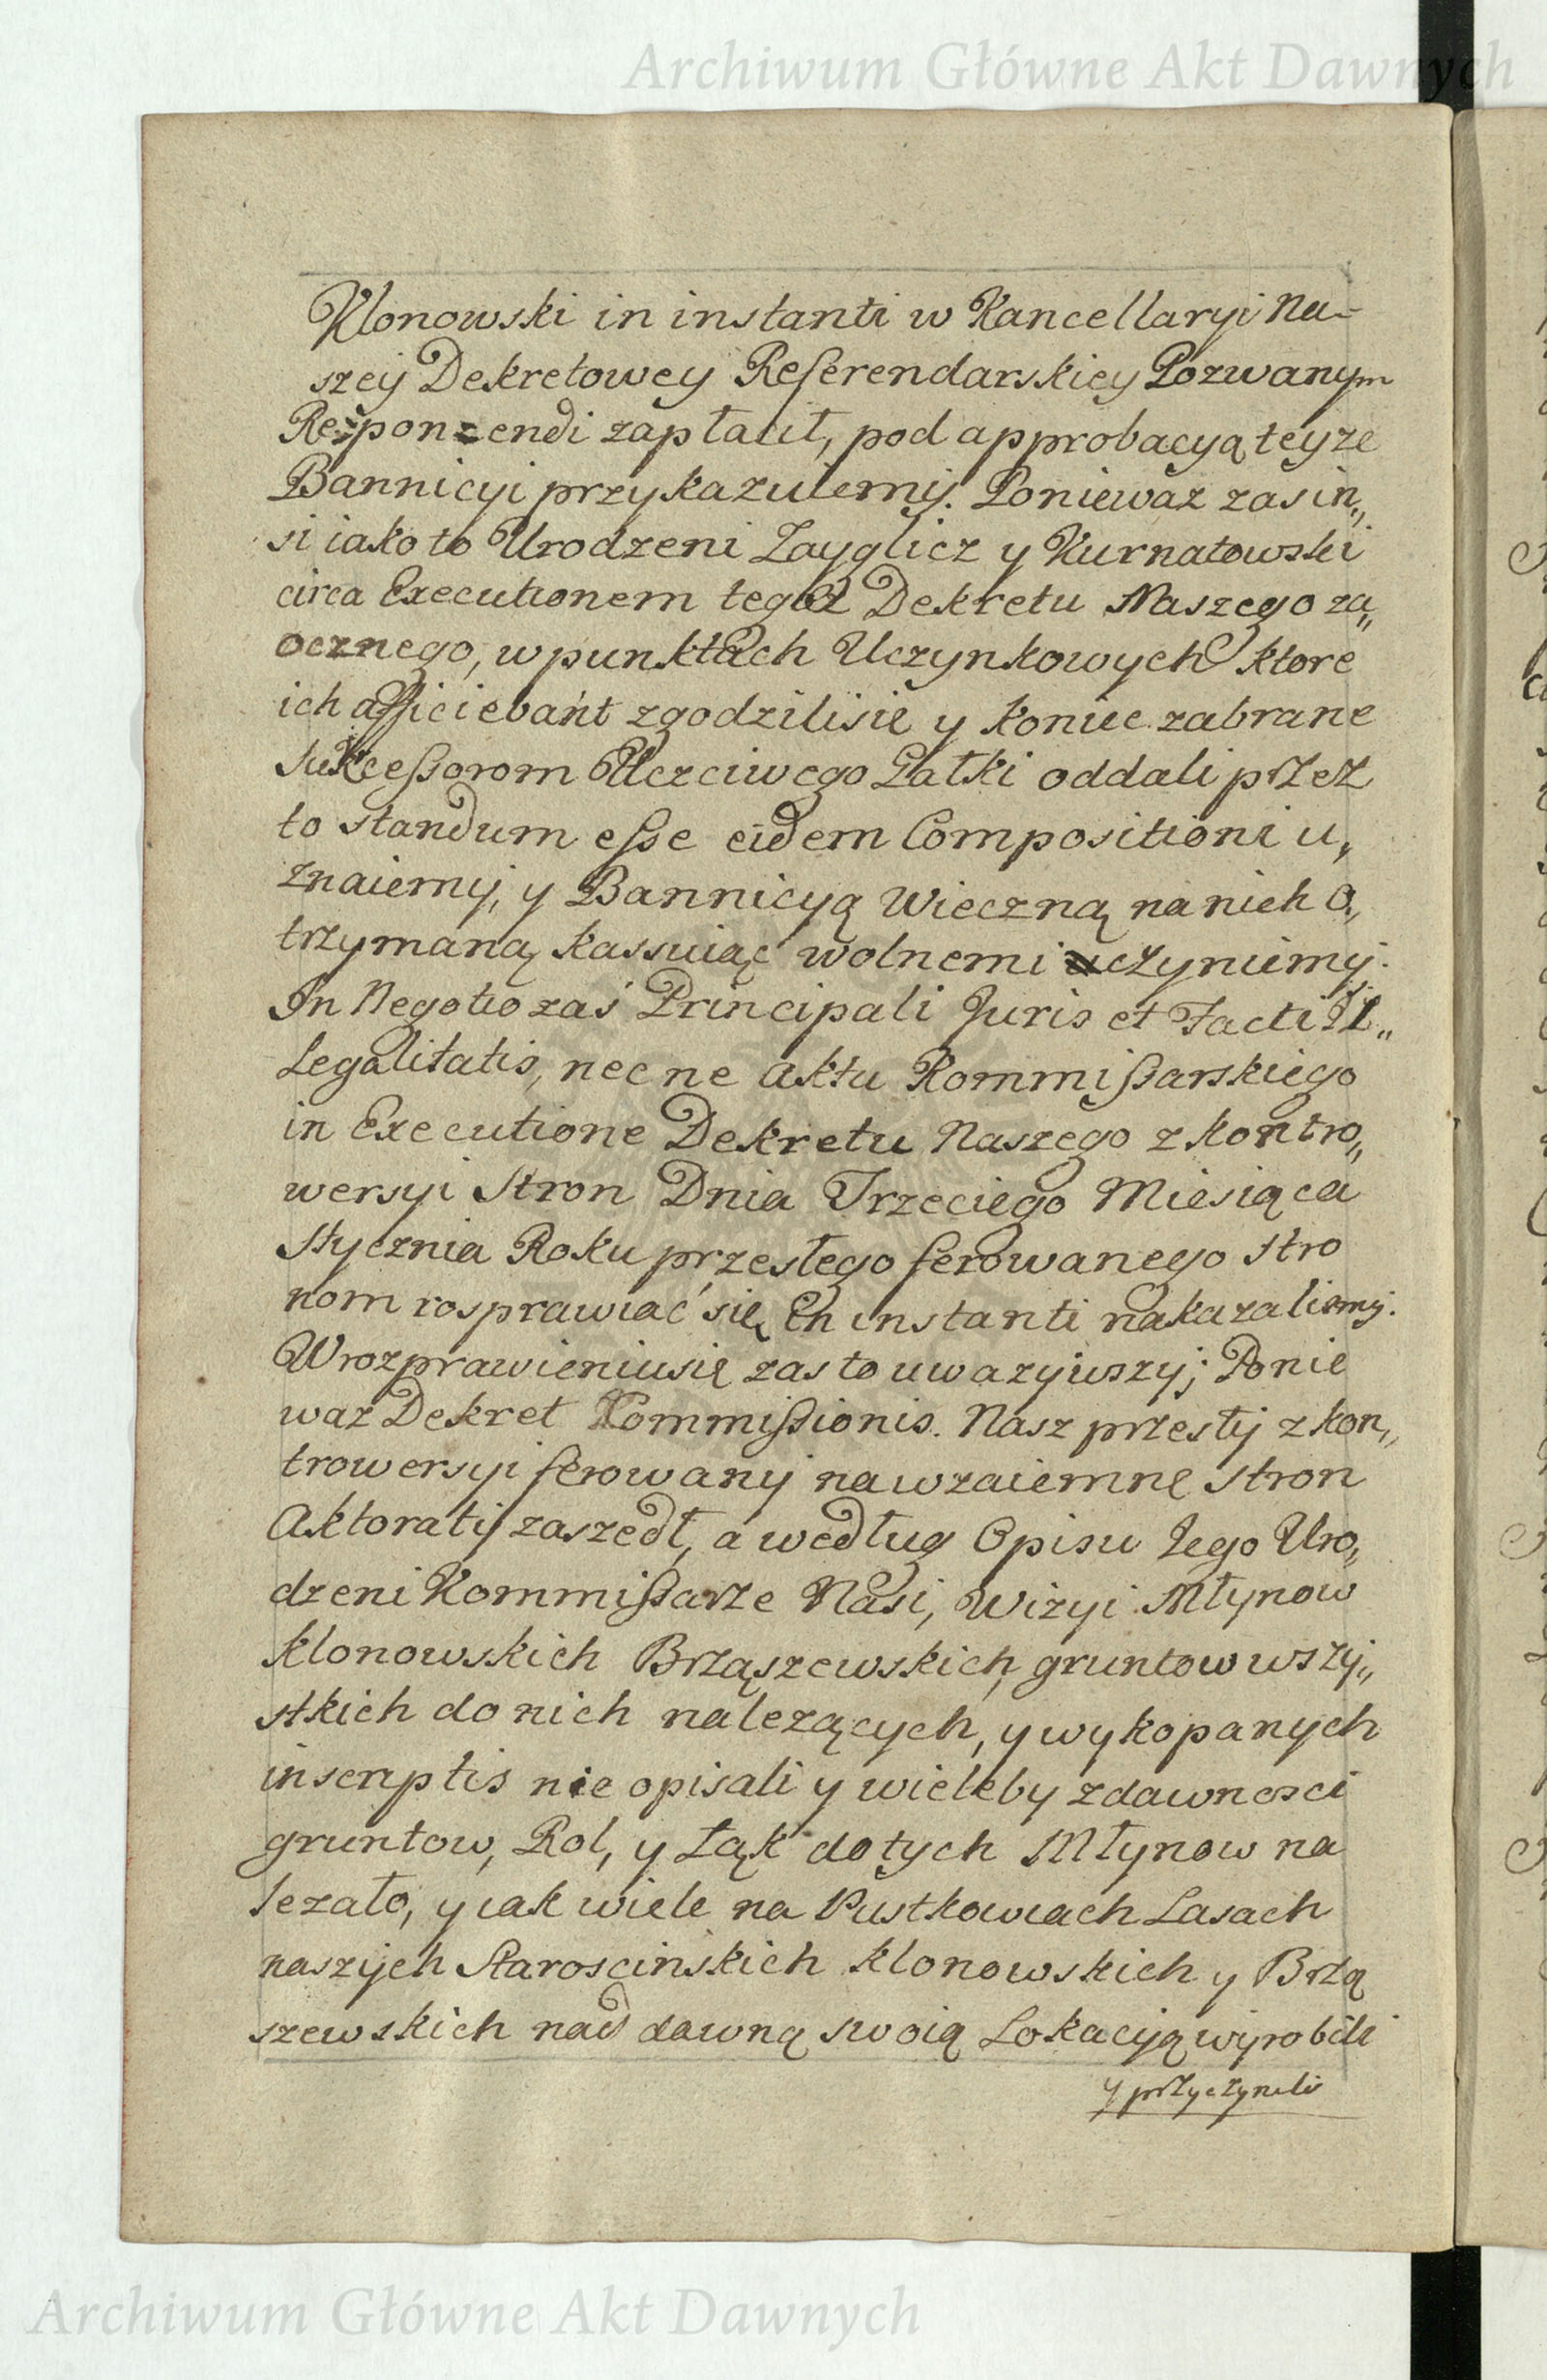 Archiwum Główne Akt Dawnych
Klonowski in instanti w Kancellaryi Na-
szey Dekretowey Referendarskiey Pozwanym
Responzendi zapłacił, pod approbacyą teyze
Bannicyi przykazuiemy. Poniewaz zas in„
si iako to Urodzeni Zayglicz y Kurnatowski
circa Executionem tegoż Dekretu Naszego za„
ocznego, w punktach Uczynkowych ktore
ich afficiebańt zgodzilisie y konie zabrane
sukcessorom Uczciwego Gałki oddali przez
to standum esse eidem Compositioni u„
znaiemy, y Bannicyą Wieczną na nich o„
trzymaną kassuiąc wolnemi uczyniemy.
In Negotio zaś Principali Juris et Facti Il„
Legalitatis, nec ne aktu Kommissarskiego
in Executione Dekretu Naszego z kontro„
wersyi Stron Dnia Trzeciego Miesiąca
Stycznia Roku przesłego ferowanego stro
nom rosprawiać się in instanti nakazalismy.
W rozprawieniu się zas to uwazywszy; Ponie
waz Dekret Kommissionis. Nasz przesły z kon„
trowersyi ferowany na wzaiemnę stron
Aktoraty zaszedł, a według Opisu Jego Uro„
dzeni Kommissarze Nasi, Wizyi Młynow
klonowskich Brząszewskich, gruntow wszy„
stkich do nich nalezących, y wykopanych
in scriptis nie opisali y wieleby z dawnosci
gruntow, Rol, y Łąk do tych Młynow na
lezało, y iak wiele na Pustkowiach Lasach
naszych Staroscinskich klonowskich y Brzą
szewskich nad dawną swoią Lokacyą wyrobili
y przyczynili
Archiwum Główne Akt Dawnych